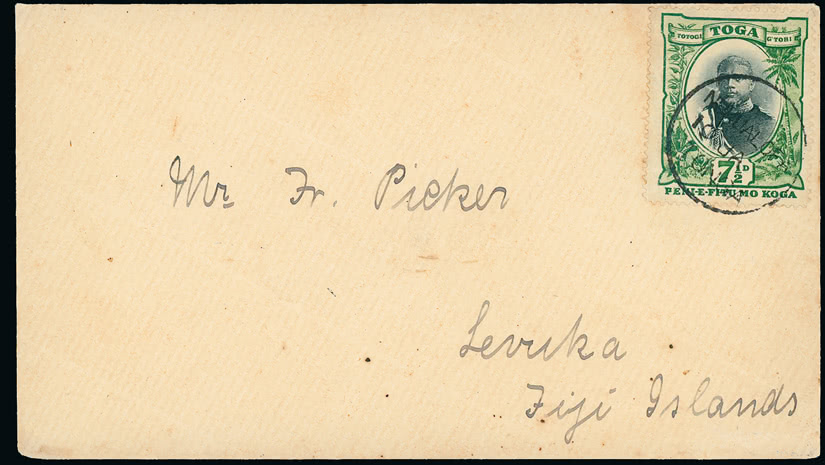 TOGA
TOTOGI G'TOBI
7½D
PENI-E-FITU MO KOGA
Mr Fr. Picker
Levuka
Fiji Islands